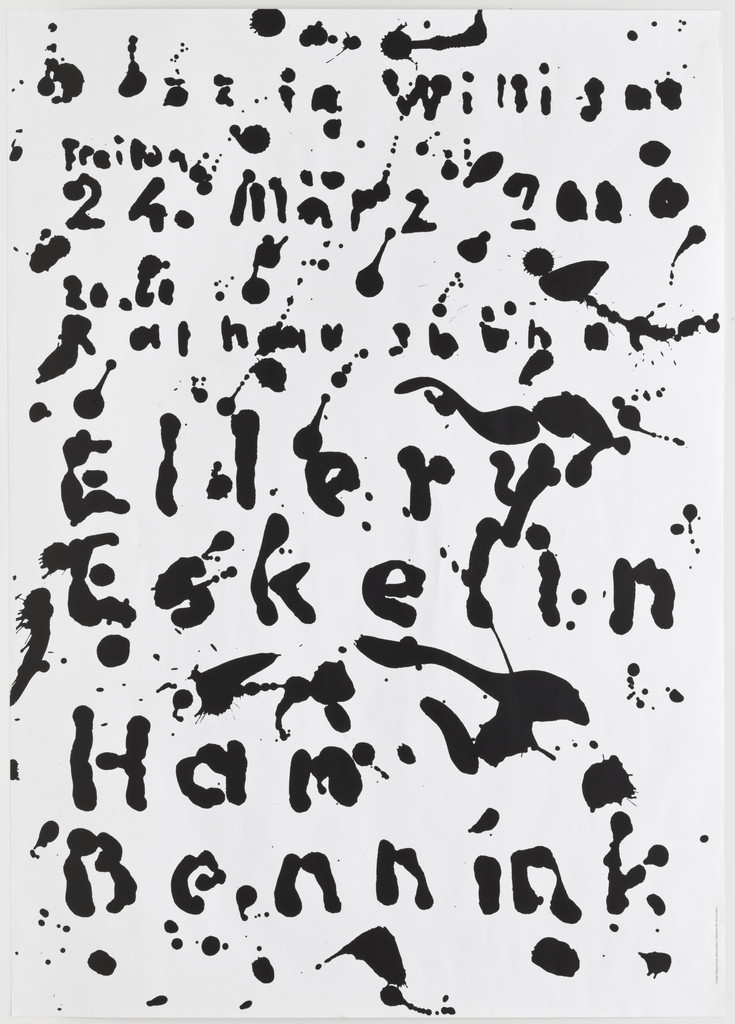 Jazz in Willisau
Freitag
24. März 2000
20.00
Rathausbühne
Ellery
Eskelin
Han
Bennink